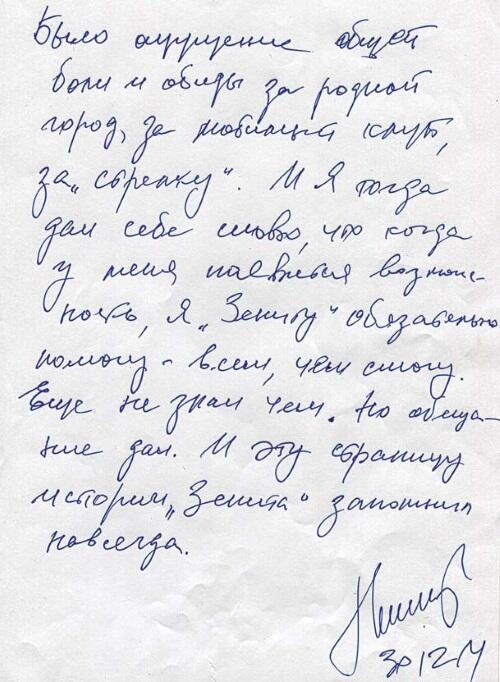 Было ощущение общей
боли и обиды за родной
город, за любимый клуб,
за „стрелку“. И Я тогда
дал себе слово, что когда
у меня появится возмож-
ность, я „Зениту“ обязательно
помогу - всем, чем смогу.
Еще не знал чем. Но обеща-
ние дал. И эту страницу
истории „Зенита“ запомнил
навсегда.
30 12 14